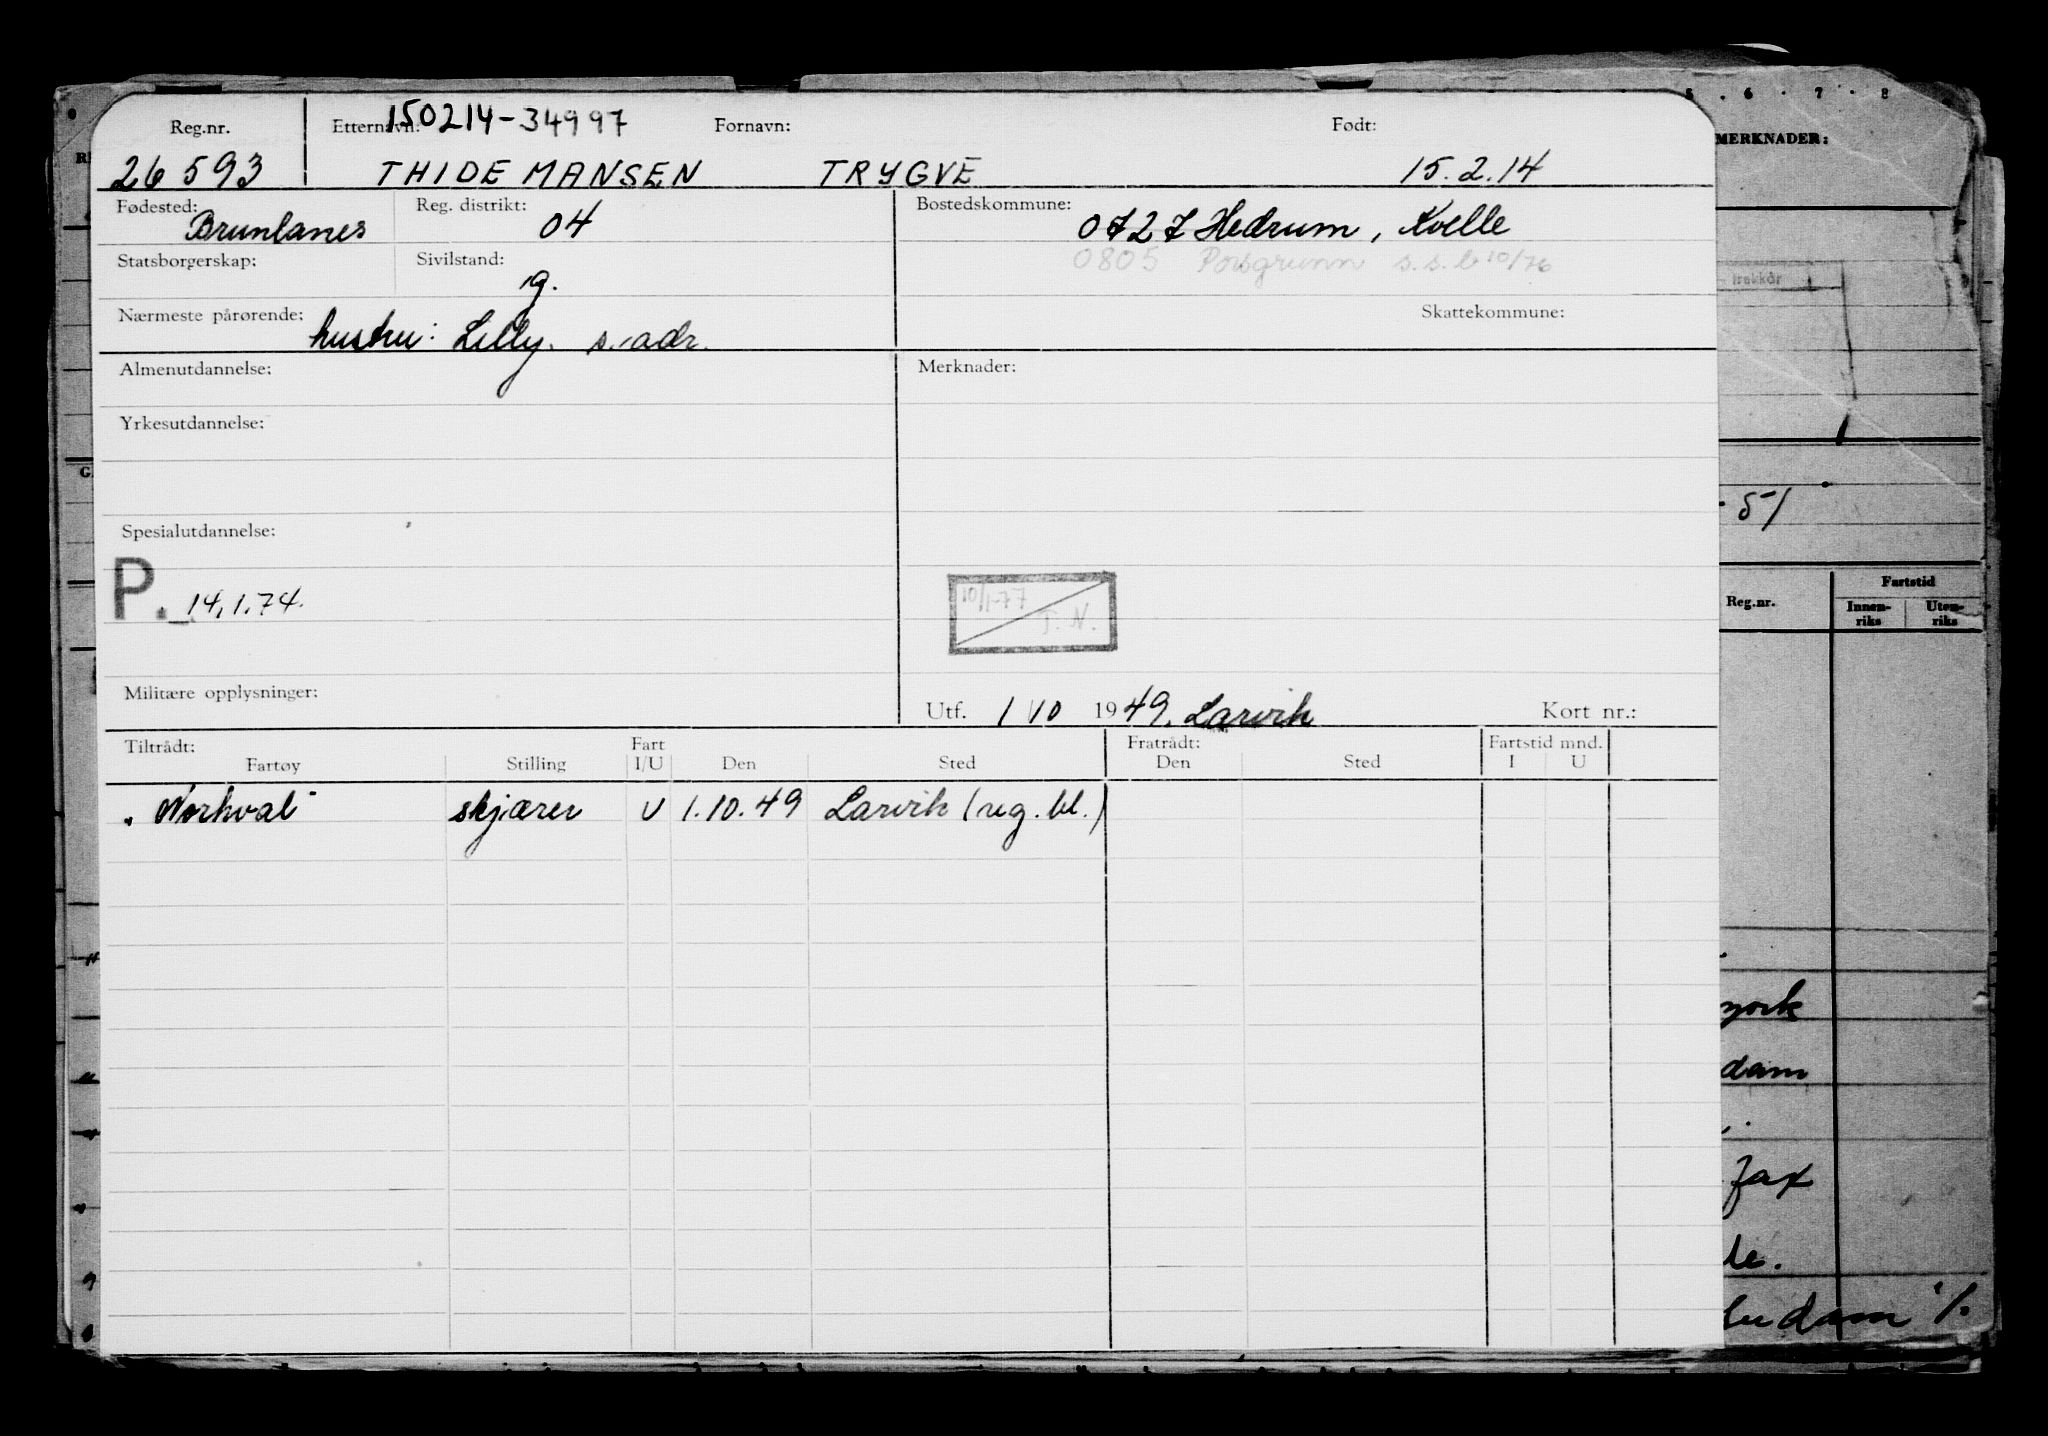 Reg.nr. Etternavn: 150214-34997 Fornavn: Født:
26 593 THIDEMANSEN TRYGVE 15.2.14
Fødested: Brunlanes Reg. distrikt: 04 Bostedskommune: 0727 Hedrum, Kvelle
Statsborgerskap: Sivilstand: g. 0805 Porsgrunn s.s.b 10/76
Nærmeste pårørende: hustru: Lilly. s. adr. Skattekommune:
Almenutdannelse: Merknader:
Yrkesutdannelse:
Spesialutdannelse:
P. 14.1.74.
10/1-77 T.N.
Militære opplysninger: Utf. 1/10 1949. Larvik Kort nr.:
Tiltrådt: Fart Fratrådt: Fartstid mnd.
Fartøy Stilling I/U Den Sted Den Sted I U
"Norhval" skjærer U 1.10.49 Larvik (reg. bl.)
5 . 6 . 7 . 8
MERKNADER:
trekkør
51
Fartstid
Reg.nr. Innen-riks Uten-riks
york
dam
Jax
de.
dam 1/.